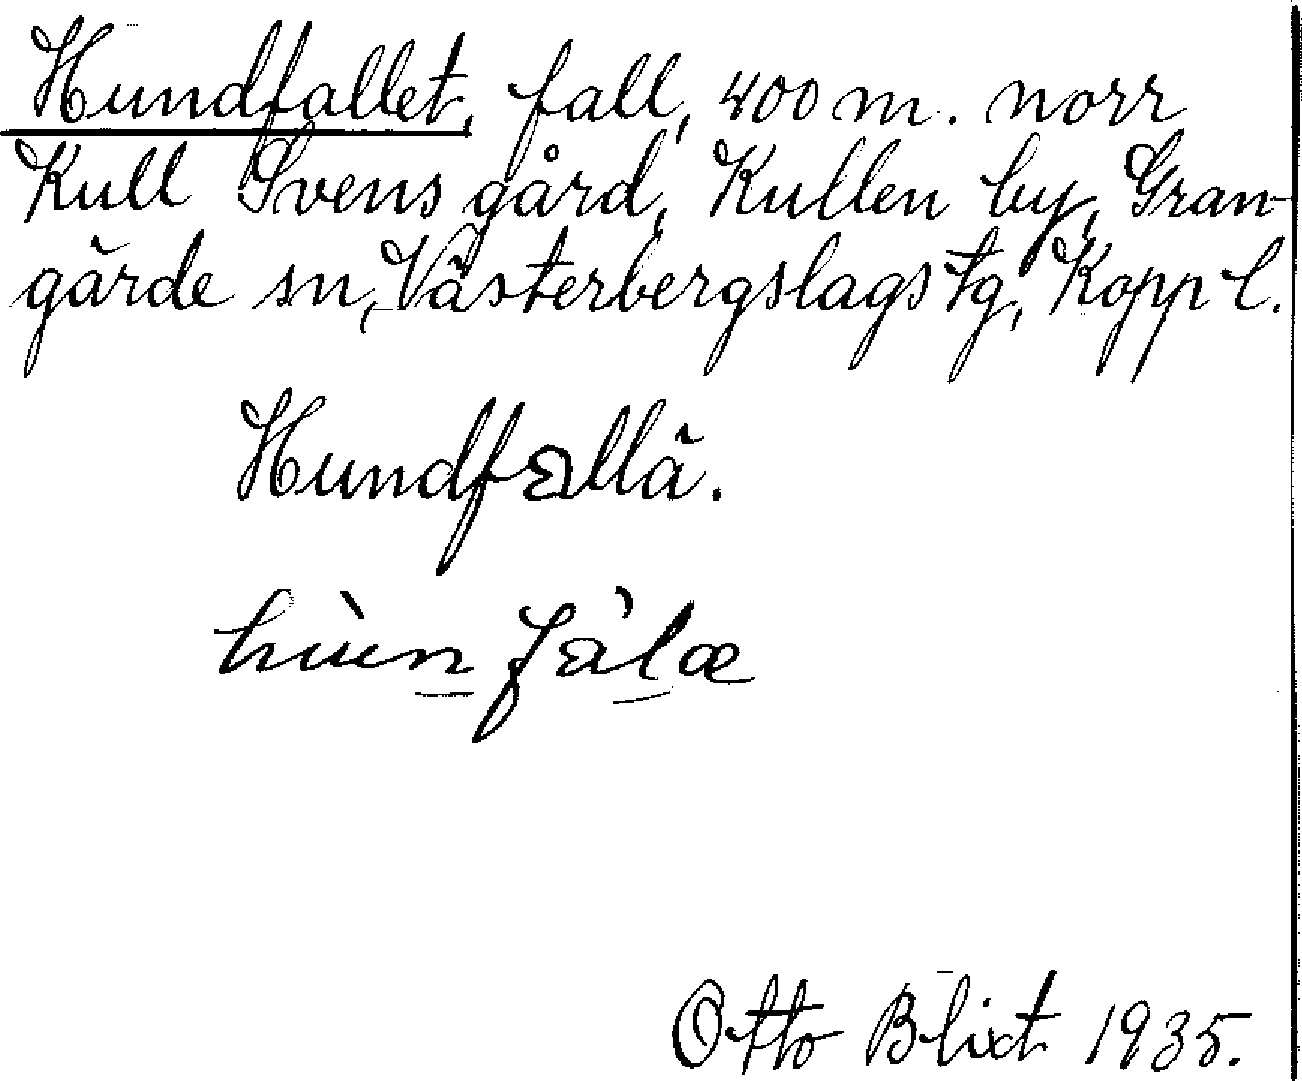 Hundfallet, fall, 400 m. norr
Kull Svens gård, Kullen by, Gran-
gärde sn, Västerbergslags tg, Kopp l.
Hundfallä.
Otto Blixt 1935.